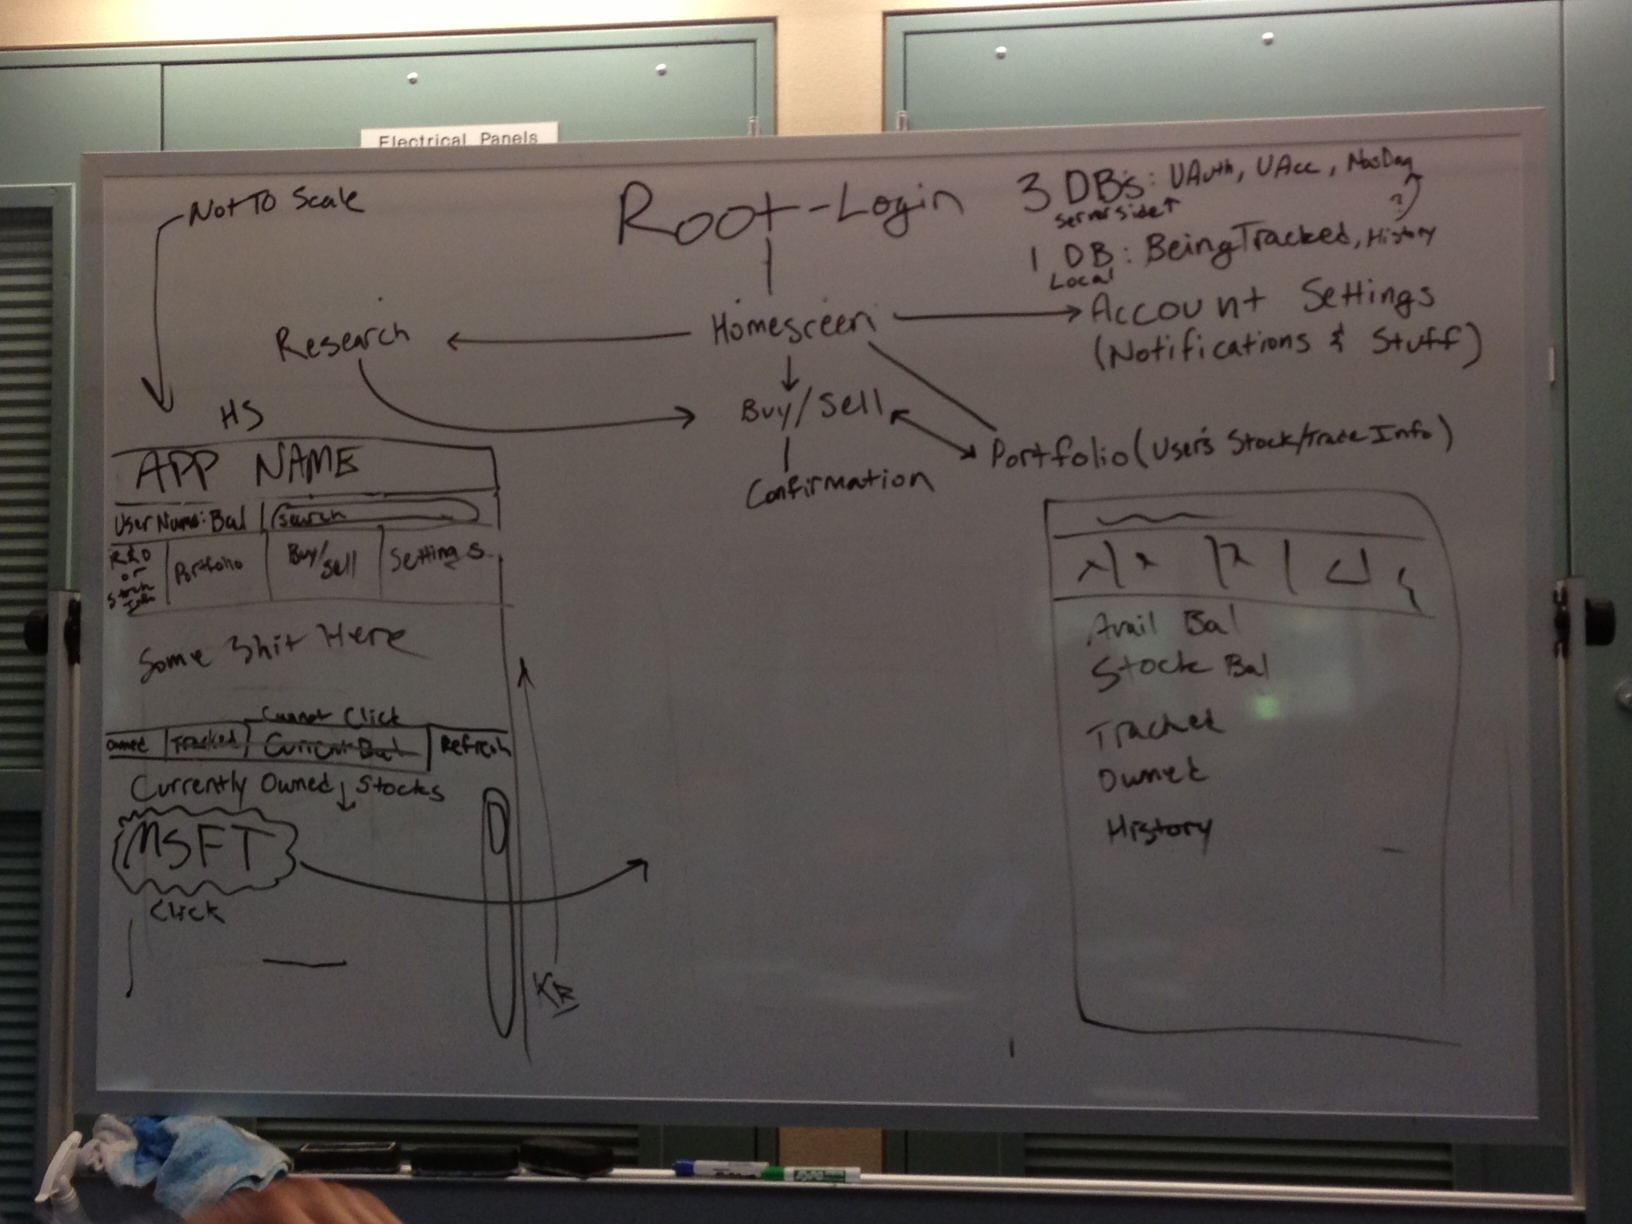 Electrical Panels
Not To Scale
Root-Login
3 DB's: UAuth, UAcc, NasDaq
Server side↑
?
1 DB: BeingTracked, History
Local
Homesceen
Account Settings
(Notifications & Stuff)
Research
Buy/Sell
Portfolio (User's Stock/Trade Info)
Confirmation
HS
APP NAME
User Name: Bal
Search
R&D
or
Stock
Info
Portfolio
Buy/
Sell
Settings
Some Shit Here
Cannot Click
Owned
Tracked
Current Bal
Refresh
Currently Owned Stocks
MSFT
Click
Avail Bal
Stock Bal
Tracked
Owned
History